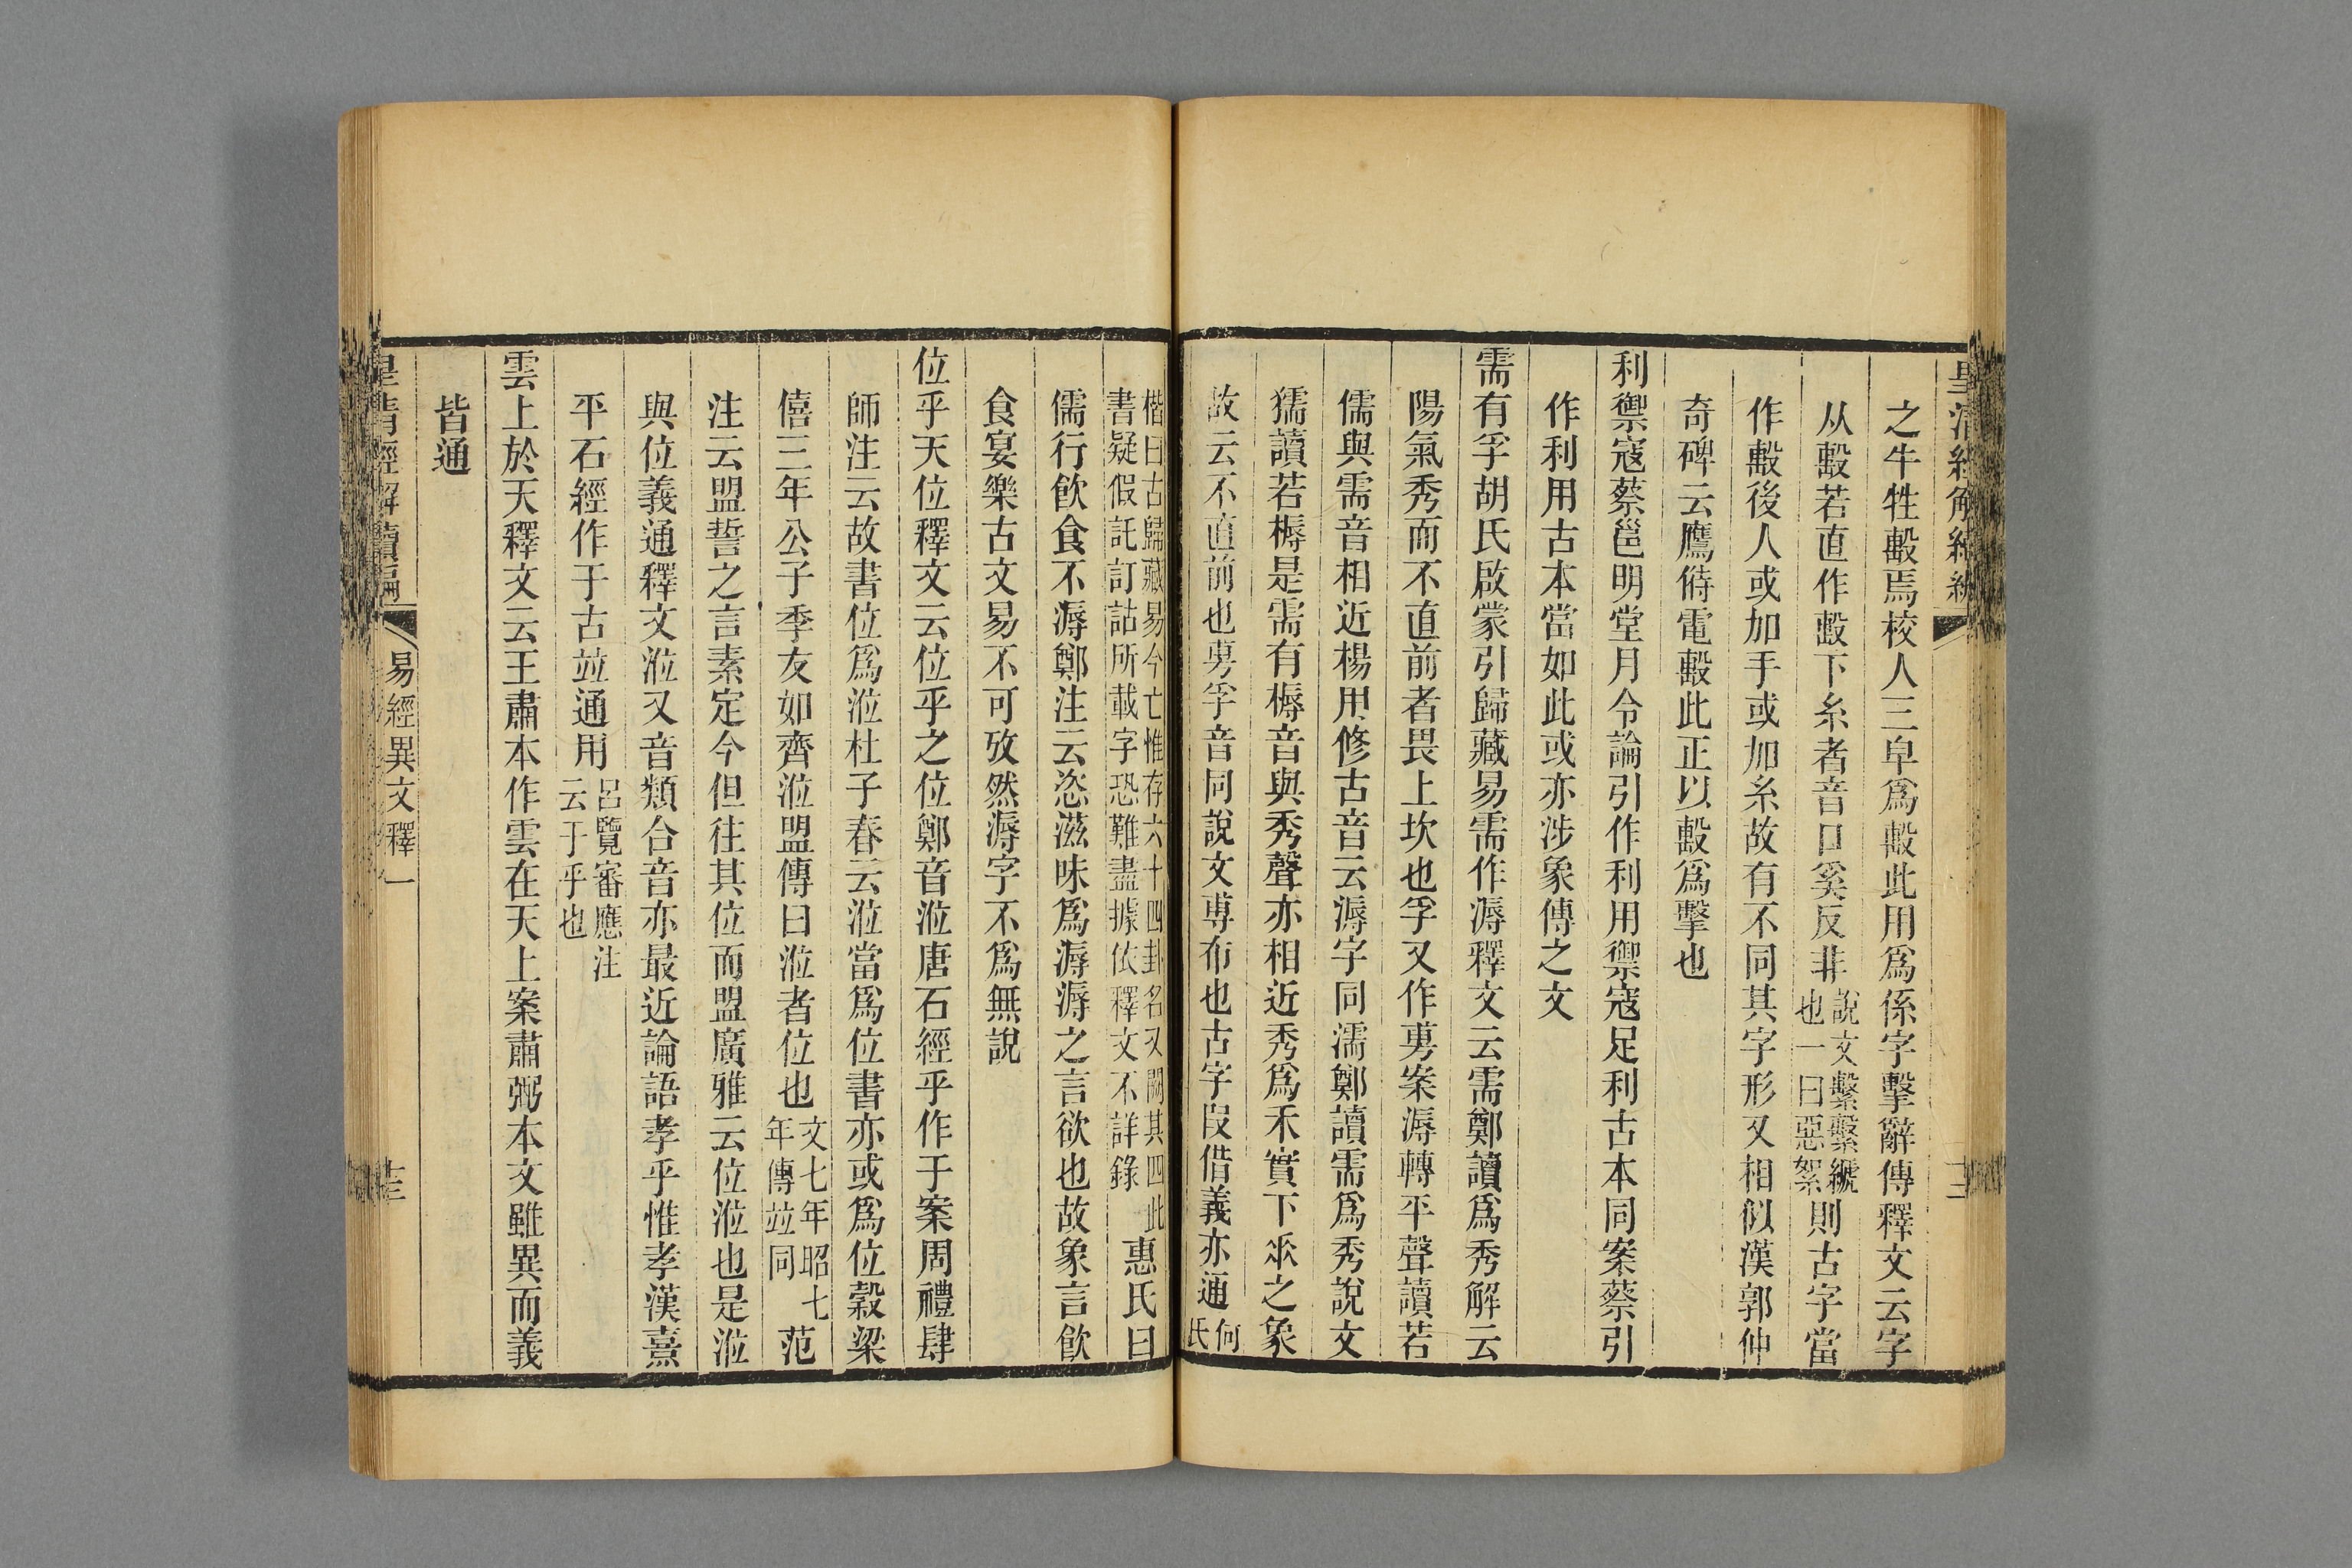 之牛牲毄焉校人三皁爲毄此用爲係字擊辭傳釋文云字
从毄若直作毄下糸者音口奚反非說文繫繫𦃇也一曰惡絮則古字當
作毄後人或加手或加糸故有不同其字形又相似漢郭仲
奇碑云鷹偫電毄此正以毄爲擊也
利禦寇蔡邕明堂月令論引作利用禦寇足利古本同案蔡引
作利用古本當如此或亦涉象傳之文
需有孚胡氏啟蒙引歸藏易需作溽釋文云需鄭讀爲秀解云
陽氣秀而不直前者畏上坎也孚又作旉案溽轉平聲讀若
儒與需音相近楊用修古音云溽字同濡鄭讀需爲秀說文
獳讀若槈是需有槈音與秀聲亦相近秀爲禾實下垂之象
故云不直前也旉孚音同說文尃布也古字叚借義亦通何氏
楷曰古歸藏易今亡惟存六十四卦名又闕其四此
書疑假託訂詁所載字恐難盡據依釋文不詳錄惠氏曰
儒行飲食不溽鄭注云恣滋味爲溽溽之言欲也故象言飲
食宴樂古文易不可攷然溽字不爲無說
位乎天位釋文云位乎之位鄭音涖唐石經乎作于案周禮肆
師注云故書位爲涖杜子春云涖當爲位書亦或爲位穀梁
僖三年公子季友如齊涖盟傳曰涖者位也文七年昭七年傳竝同范
注云盟誓之言素定今但往其位而盟廣雅云位涖也是涖
與位義通釋文涖又音類合音亦最近論語孝乎惟孝漢熹
平石經作于古竝通用呂覽審應注云于乎也
雲上於天釋文云王肅本作雲在天上案肅弼本文雖異而義
皆通
皇清經解續編
易經異文釋一
十三